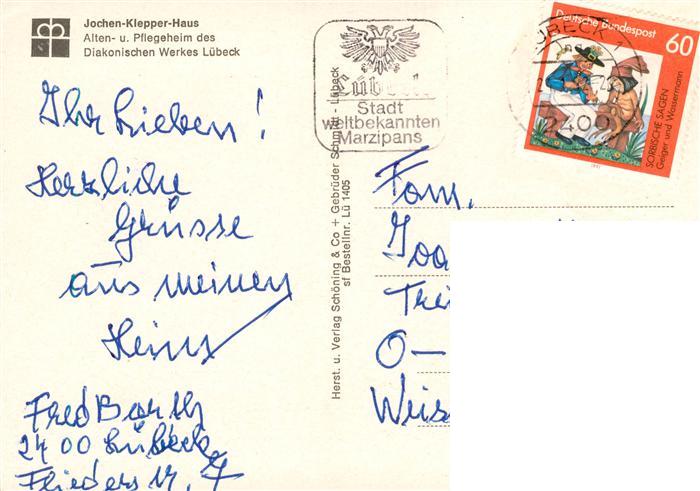 Jochen-Klepper-Haus
Alten- u. Pflegeheim des
Diakonischen Werkes Lübeck
Ihr Lieben!
Herzliche
Grüsse
aus meinem
Heim
Fred Barth
2400 Lübeck
Flieders
7
Herst. u. Verlag Schöning & Co + Gebrüder Schmidt - Lübeck
sf Bestellnr. Lü 1405
Lübeck
Stadt
weltbekannten
Marzipans
LÜBECK 1
2400
Deutsche Bundespost
60
SORBISCHE SAGEN
Geiger und Wassermann
Fam.
O-